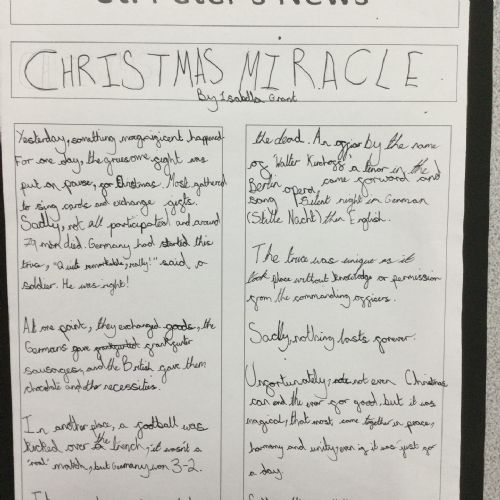 St. Peter's News
CHRISTMAS MIRACLE
By Isabella Grant
Yesterday, something magnigicent happened
For one day, the gruesome gight was
put on pause, gor Christmas. Most gathered
to sing carols and exchange gigts.
Sadly, not all participated and around
79 men died. Germany had started this
truce, "Quite remarkable, really!" said a
soldier. He was right!
At one point, they exchanged goods, the
Germans gave grankgurter
sausages, and the British gave them
chocolate and other necessities.
In another place, a gootball was
kicked over the trench, it wasn't a
'real' match, but Germany won 3-2.
the dead. An oggicer by the name
og Walter Kirchogg a tenor in the
Berlin opera, came gorward and
song Silent night in German
(Stille Nacht) then English.
The truce was unique as it
took place without knowledge or permission
grom the commanding oggicers.
Sadly, nothing lasts gorever.
Ungortunately, not even Christmas
can end the war gor good, but it was
magical, that most come together in peace,
harmony and unity, even ig it was just gor
a day.